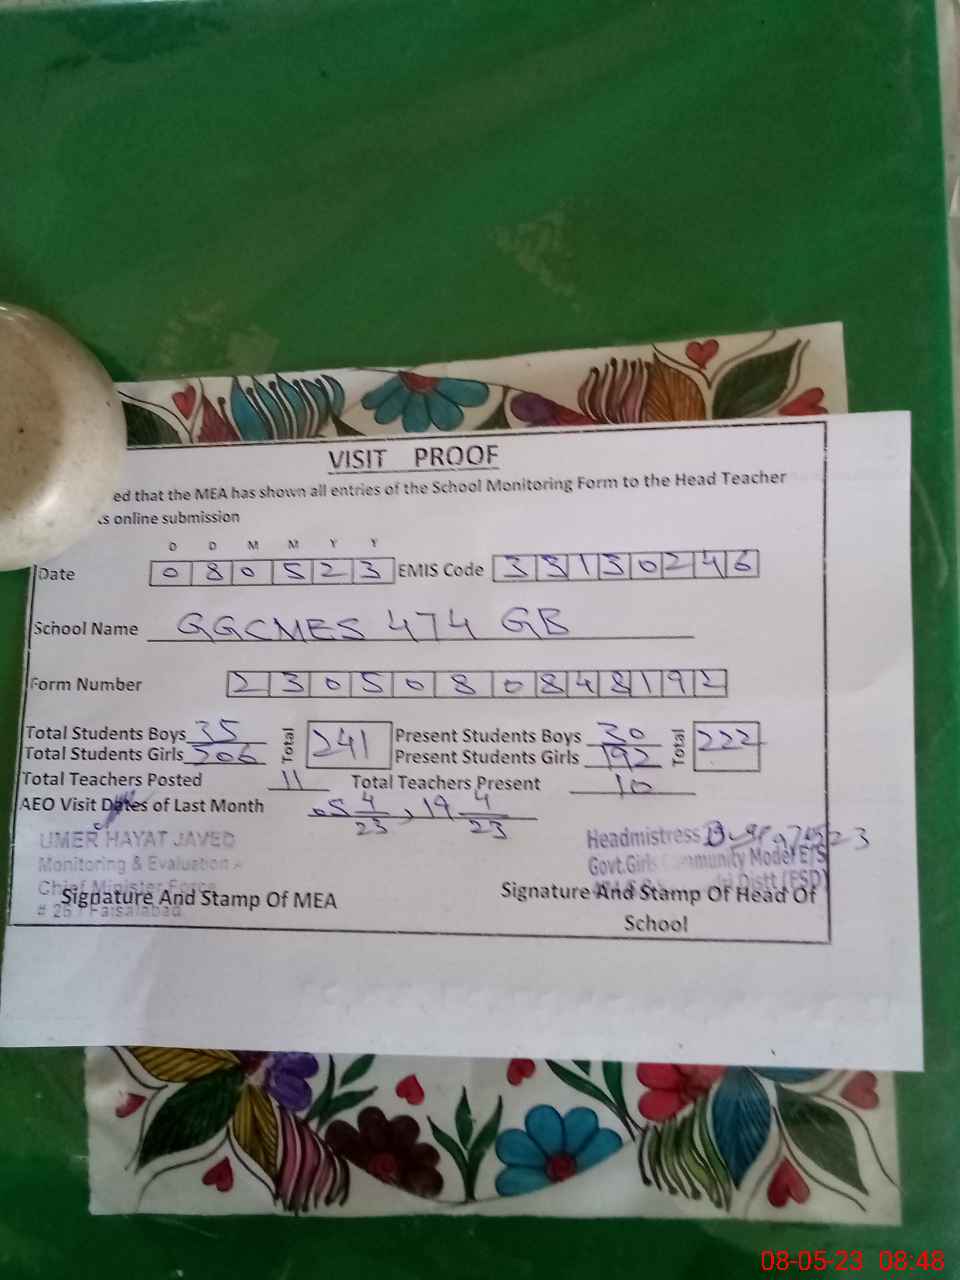 VISIT PROOF
ed that the MEA has shown all entries of the School Monitoring Form to the Head Teacher
s online submission
D D M M Y Y
Date 080523 EMIS Code 33130246
School Name GGCMES 474 GB
Form Number 2305080848192
Total Students Boys 35 Total 241 Present Students Boys 30 Total 222
Total Students Girls 206 Present Students Girls 192
Total Teachers Posted 11 Total Teachers Present 10
AEO Visit Dates of Last Month 05 4/23, 19 4/23
UMER HAYAT JAVED
Monitoring & Evaluation
Chief Minister Force
Faisalabad
Signature And Stamp Of MEA
Headmistress
Govt. Girls Community Model E/S
Distt (FSD)
Signature And Stamp Of Head Of
School
08-05-23 08:48